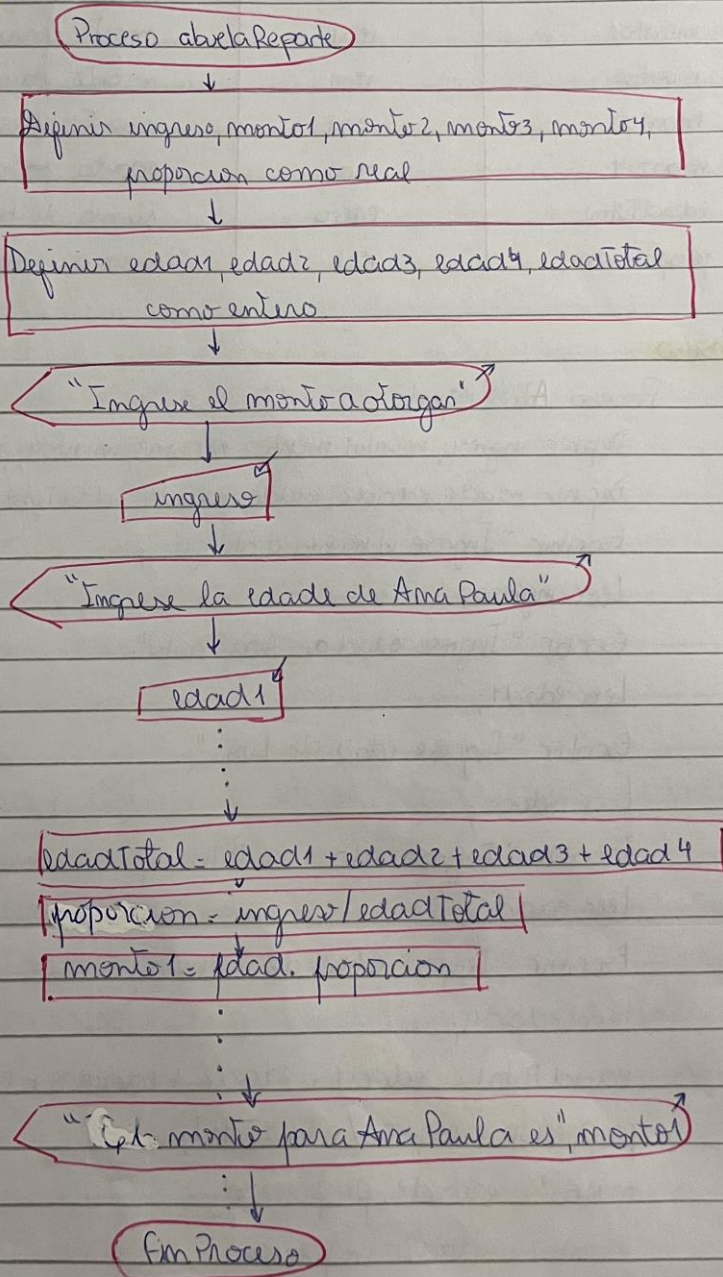 Proceso abuelaReparte
Definir ingreso, monto1, monto2, monto3, monto4,
proporcion como real
Definir edad1, edad2, edad3, edad4, edadTotal
como entero
"Ingrese el monto a otorgar"
ingreso
"Ingrese la edade de Ana Paula"
edad1
edadTotal = edad1 + edad2 + edad3 + edad4
proporcion = ingreso/edadTotal
monto1 = edad. proporcion
monto para Ana Paula es", monto1
FinProceso